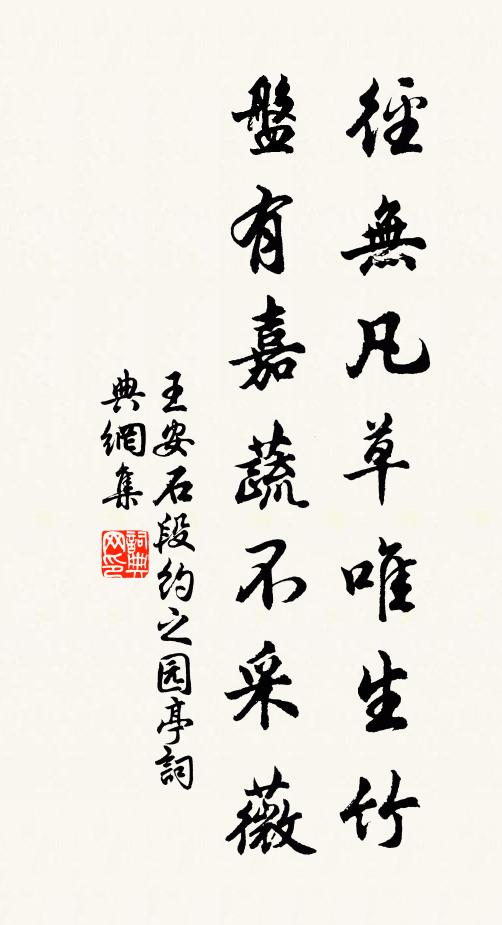 徑無凡草唯生竹
盤有嘉蔬不采薇
王安石段約之园亭詞
典網集
詞典
网印